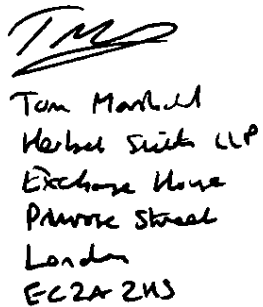 Tom Marshall
Herbert Smith LLP
Exchange House
Primrose Street
London
EC2A 2HS